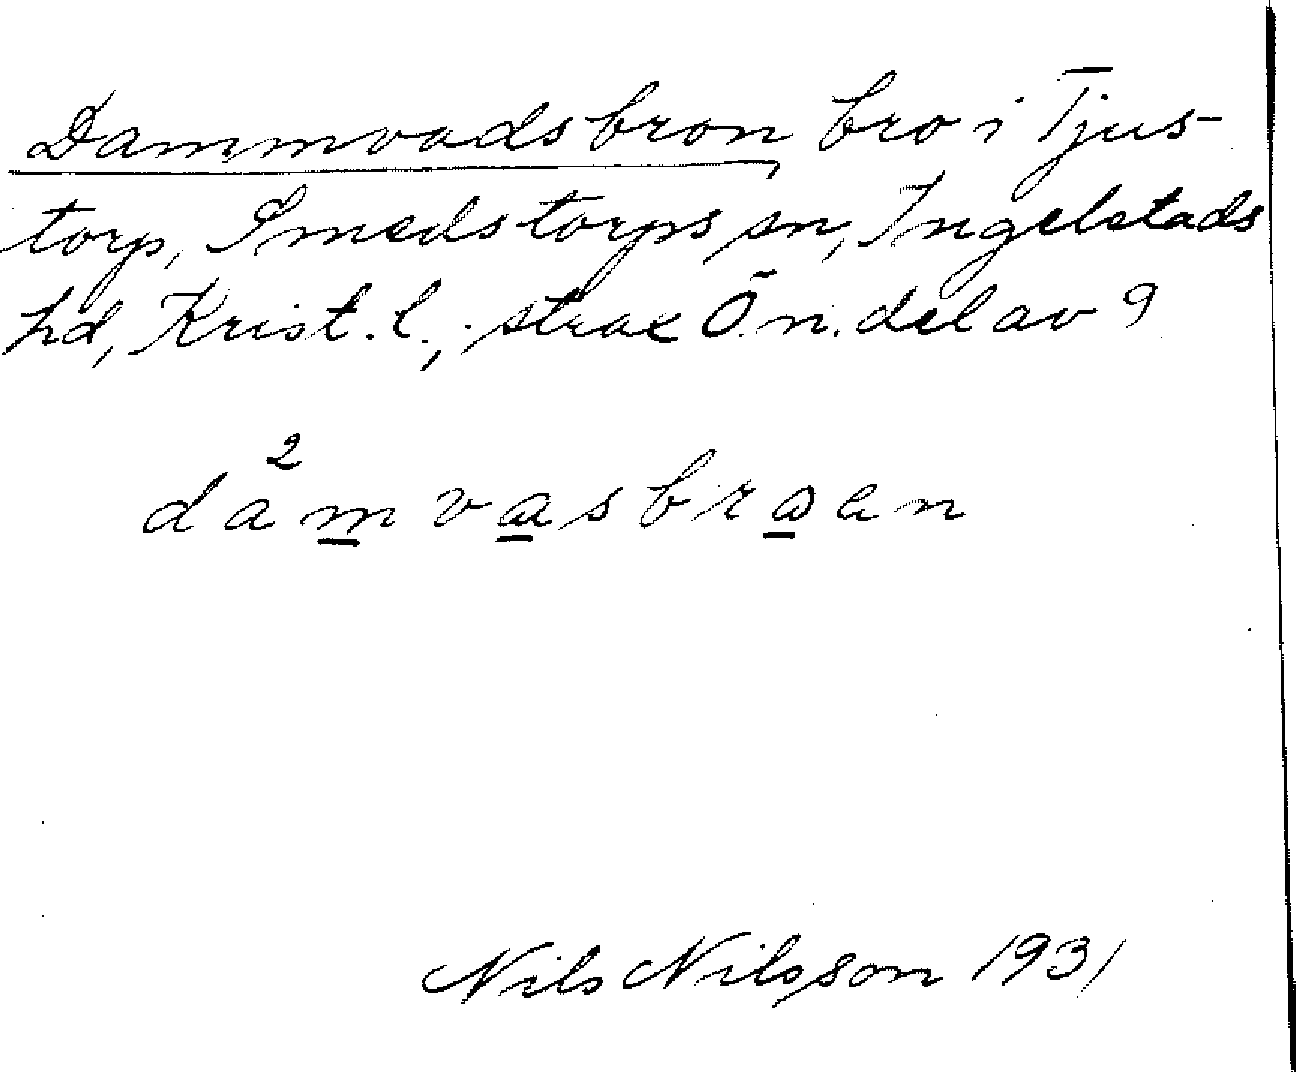 Dammvadsbron bro i Tjus-
torp, Smedstorps sn, Ingelstads
hd, Krist. l., strax Ö. n. del av 9
2
damvasbroen
Nils Nilsson 1931